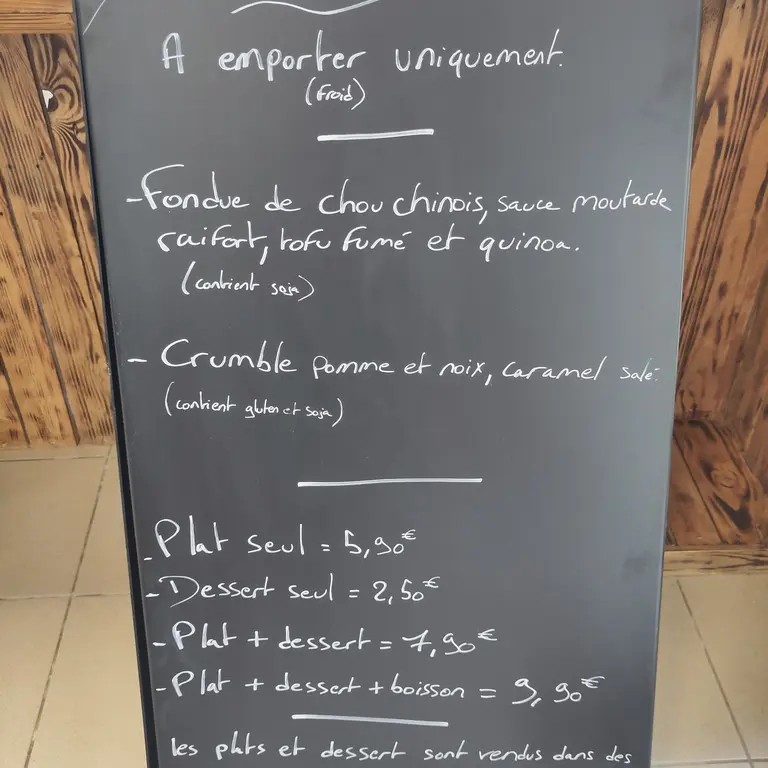 A emporter uniquement.
(froid)
- Fondue de chou chinois, sauce moutarde
raifort, tofu fumé et quinoa.
(contient soja)
- Crumble pomme et noix, caramel salé.
(contient gluten et soja)
- Plat seul = 5,90€
- Dessert seul = 2,50€
- Plat + dessert = 7,90€
- Plat + dessert + boisson = 9,90€
les plats et dessert sont vendus dans des